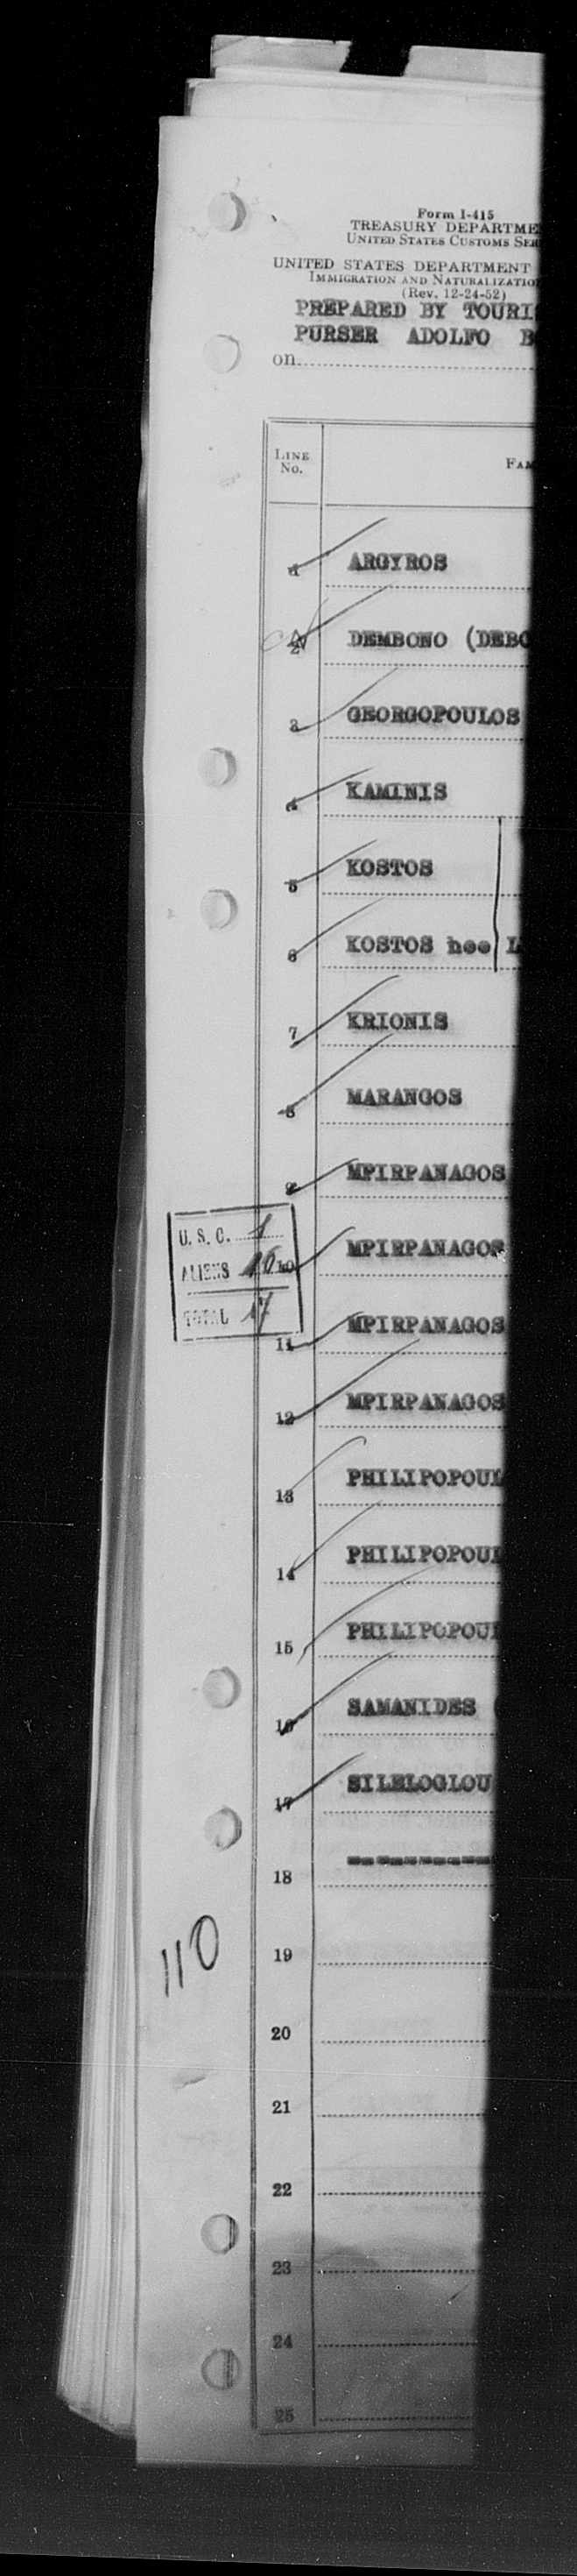 Form I-415
TREASURY DEPARTME
UNITED STATES CUSTOMS SER
UNITED STATES DEPARTMENT
IMMIGRATION AND NATURALIZATIO
(Rev. 12-24-52)
PREPARED BY TOURIS
PURSER ADOLFO B
on
LINE No. FAM
1 ARGYROS
2 DEMBONO (DEBO
3 GEORGOPOULOS
4 KAMINIS
5 KOSTOS
6 KOSTOS nee L
7 KRIONIS
8 MARANGOS
9 MPIRPANAGOS
U. S. C. 1
ALIENS 16
TOTAL 17
10 MPIRPANAGOS
11 MPIRPANAGOS
12 MPIRPANAGOS
13 PHILIPOPOUL
14 PHILIPOPOUL
15 PHILIPOPOUL
16 SAMANIDES (
17 SILELOGLOU
18 ----------
110
19
20
21
22
23
24
25